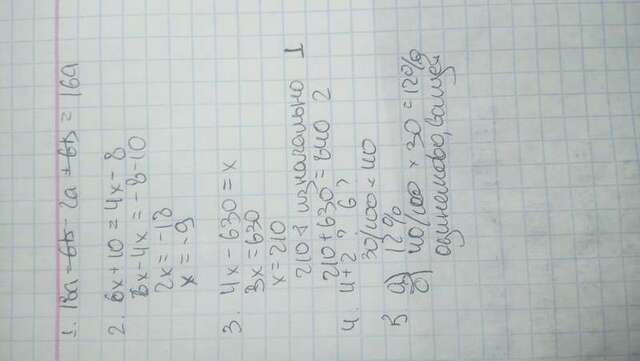 1. 18a - 6b - 2a + 6b = 16a
2. 6x + 10 = 4x - 8
6x - 4x = -8 - 10
2x = -18
x = -9
3. 4x - 630 = x
3x = 630
x = 210
210 г изначально 1
210 + 630 = 840 2
4.
30/100 × 40
5 а) 12%
б) 40/100 × 30 = 12%
одинаково,